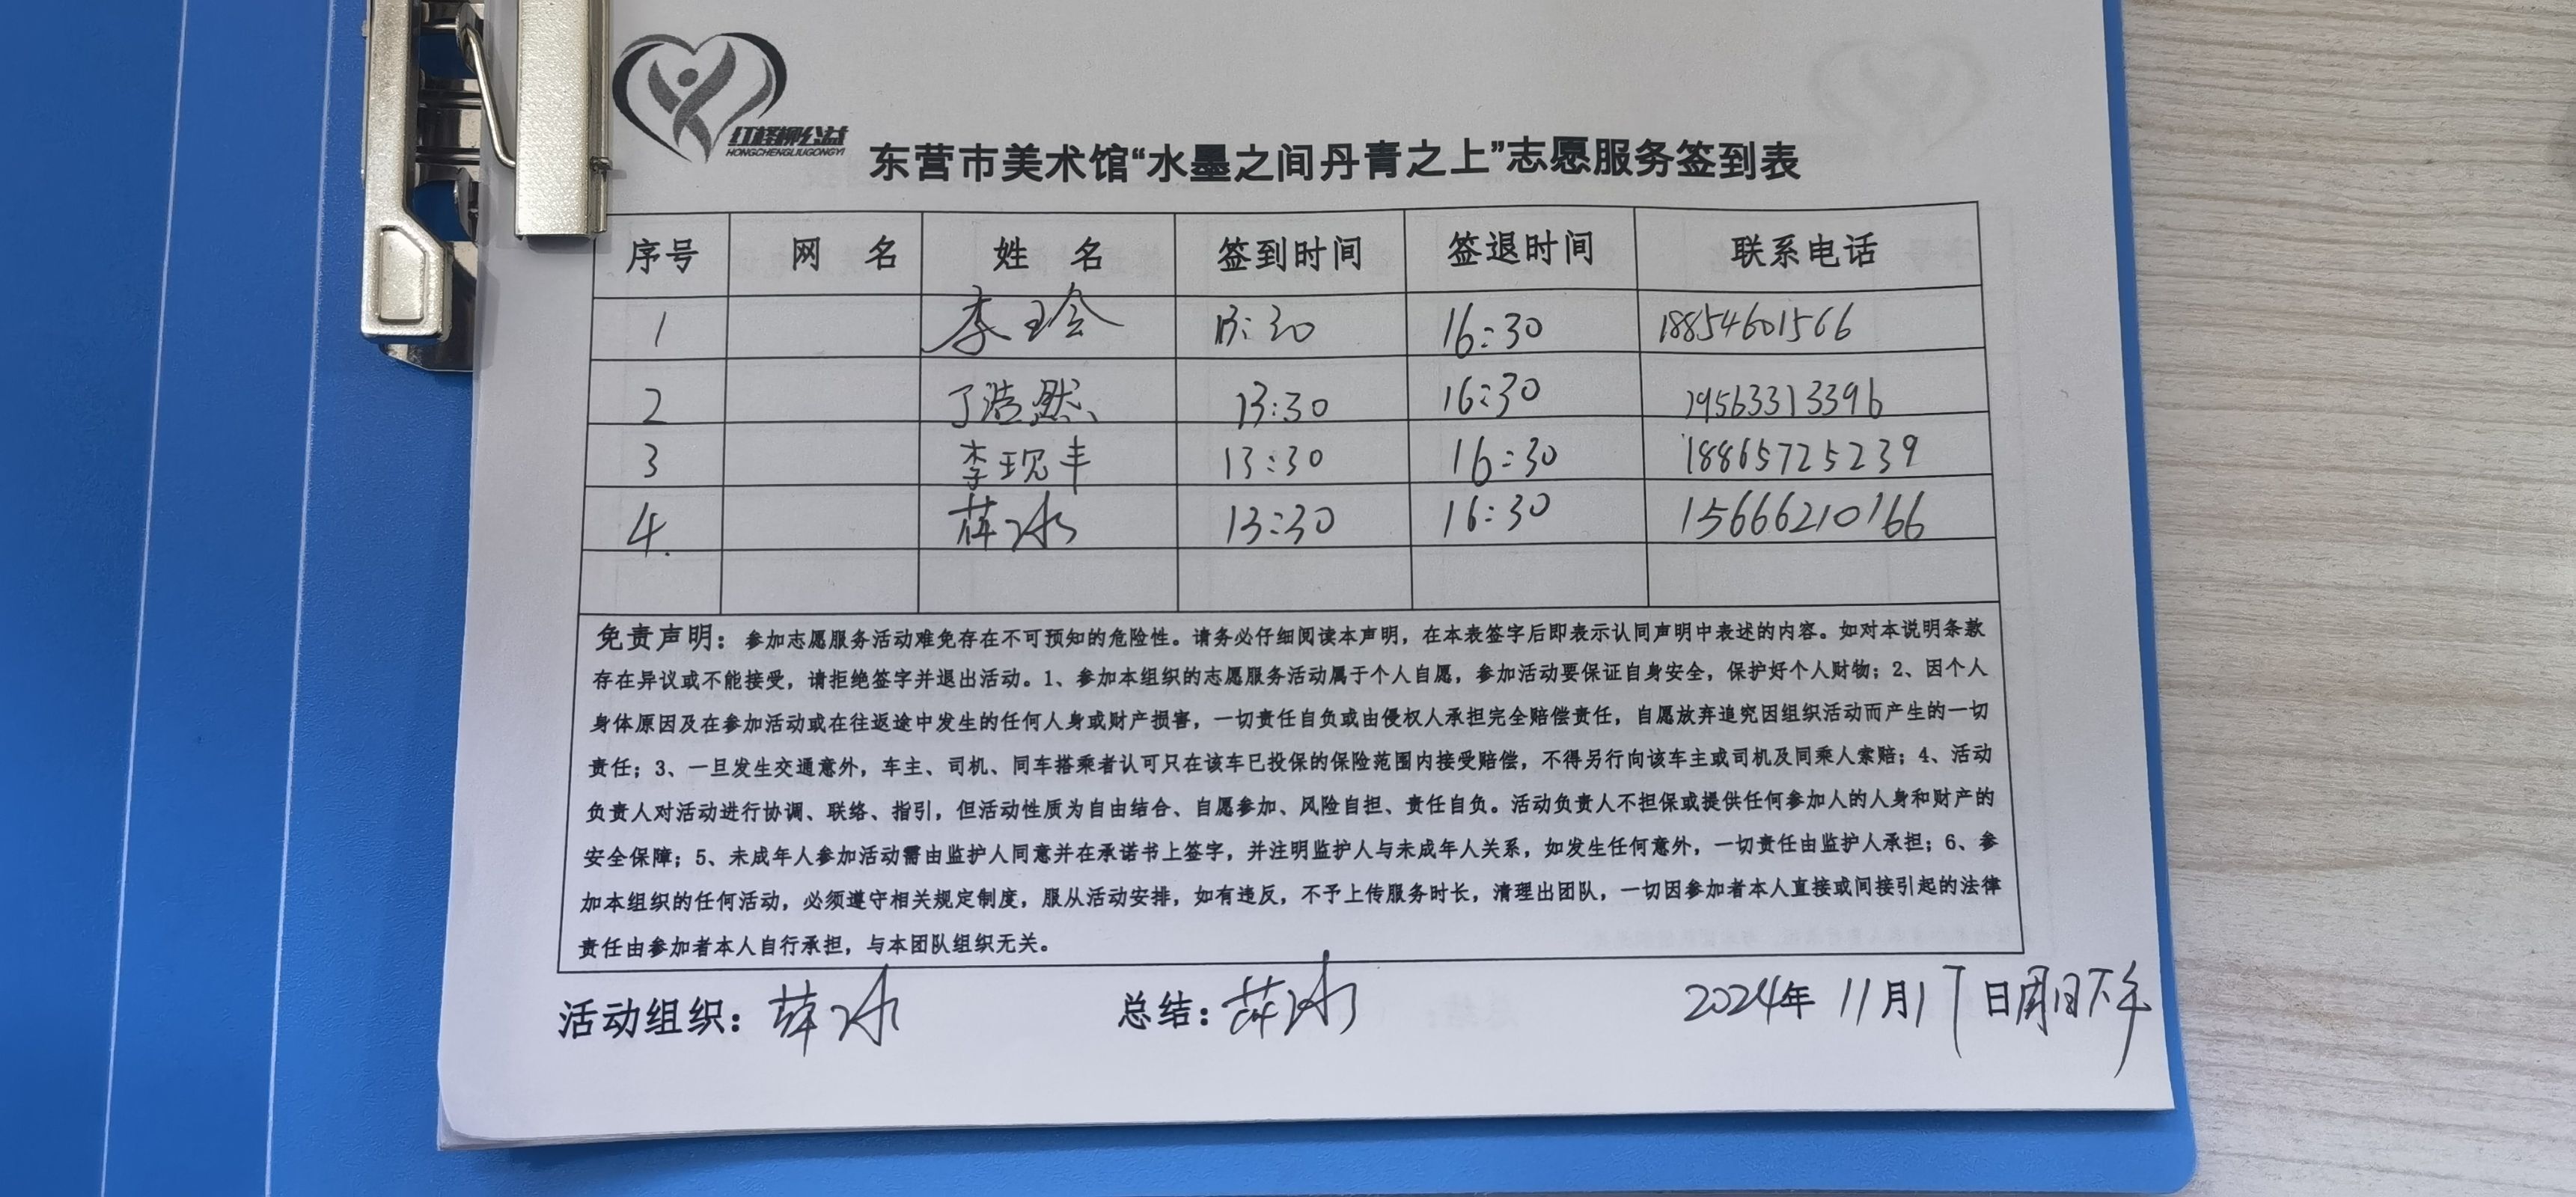 红柽柳公益
HONGCHENGLIUGONGYI
东营市美术馆“水墨之间丹青之上”志愿服务签到表
序号 网 名 姓 名 签到时间 签退时间 联系电话
1 李玲 13:30 16:30 18854601566
2 丁浩然 13:30 16:30 19563313396
3 李现丰 13:30 16:30 18865725239
4. 薛冰 13:30 16:30 15666210166
免责声明：参加志愿服务活动难免存在不可预知的危险性。请务必仔细阅读本声明，在本表签字后即表示认同声明中表述的内容。如对本说明条款
存在异议或不能接受，请拒绝签字并退出活动。1、参加本组织的志愿服务活动属于个人自愿，参加活动要保证自身安全，保护好个人财物；2、因个人
身体原因及在参加活动或在往返途中发生的任何人身或财产损害，一切责任自负或由侵权人承担完全赔偿责任，自愿放弃追究因组织活动而产生的一切
责任；3、一旦发生交通意外，车主、司机、同车搭乘者认可只在该车已投保的保险范围内接受赔偿，不得另行向该车主或司机及同乘人索赔；4、活动
负责人对活动进行协调、联络、指引，但活动性质为自由结合、自愿参加、风险自担、责任自负。活动负责人不担保或提供任何参加人的人身和财产的
安全保障；5、未成年人参加活动需由监护人同意并在承诺书上签字，并注明监护人与未成年人关系，如发生任何意外，一切责任由监护人承担；6、参
加本组织的任何活动，必须遵守相关规定制度，服从活动安排，如有违反，不予上传服务时长，清理出团队，一切因参加者本人直接或间接引起的法律
责任由参加者本人自行承担，与本团队组织无关。
活动组织：薛冰 总结：薛冰 2024年 11月17日周日下午